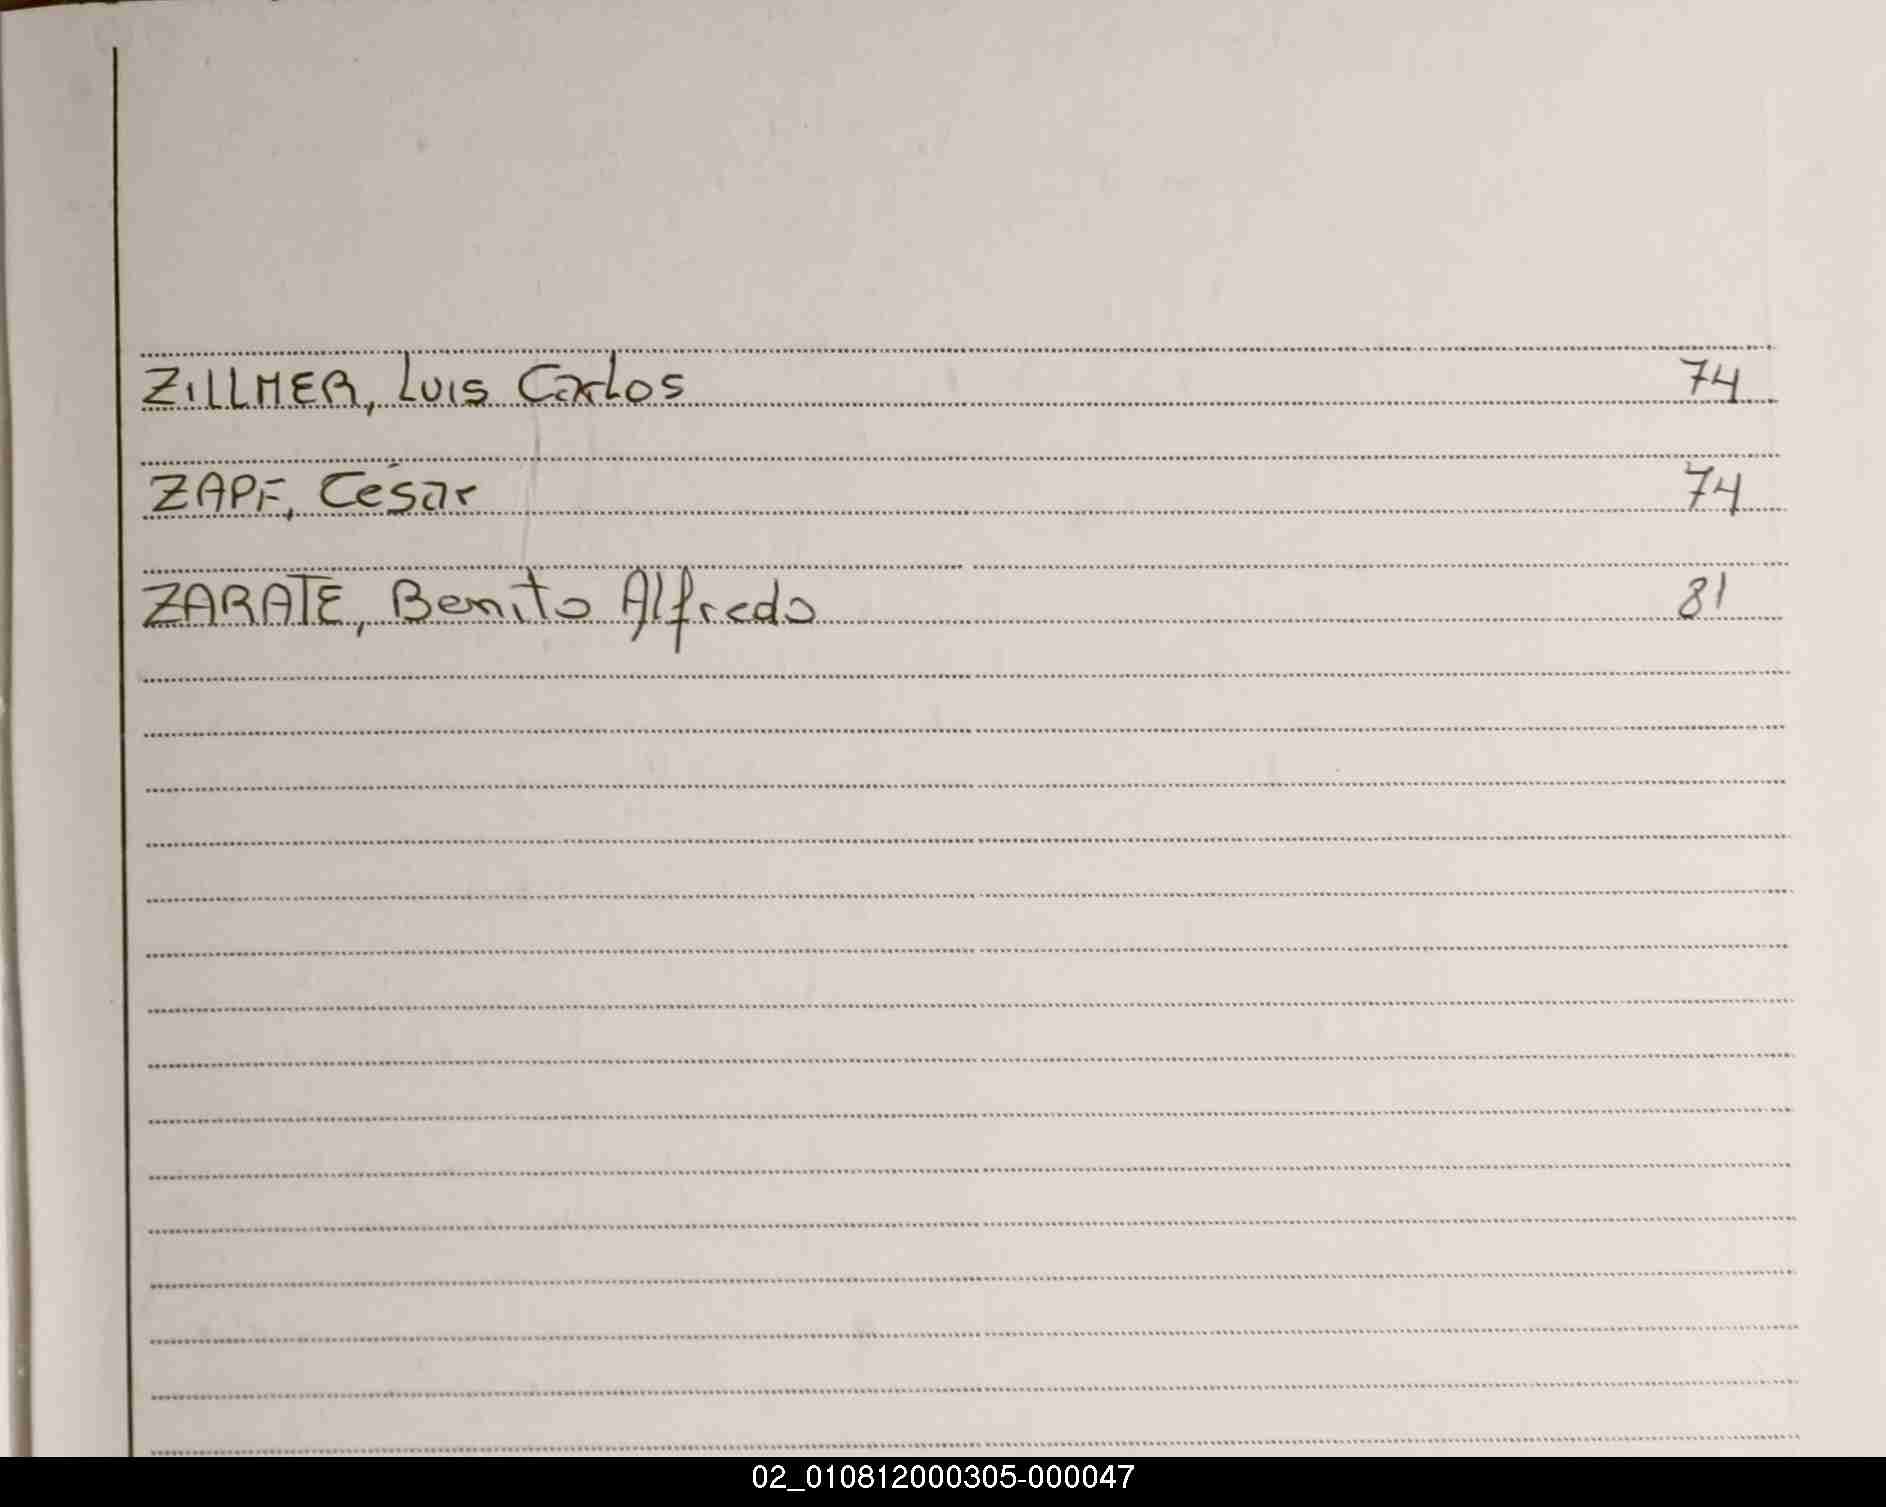 ZILLMER, Luis Carlos 74
ZAPF, César 74
ZARATE, Benito Alfredo 81
02_010812000305-000047